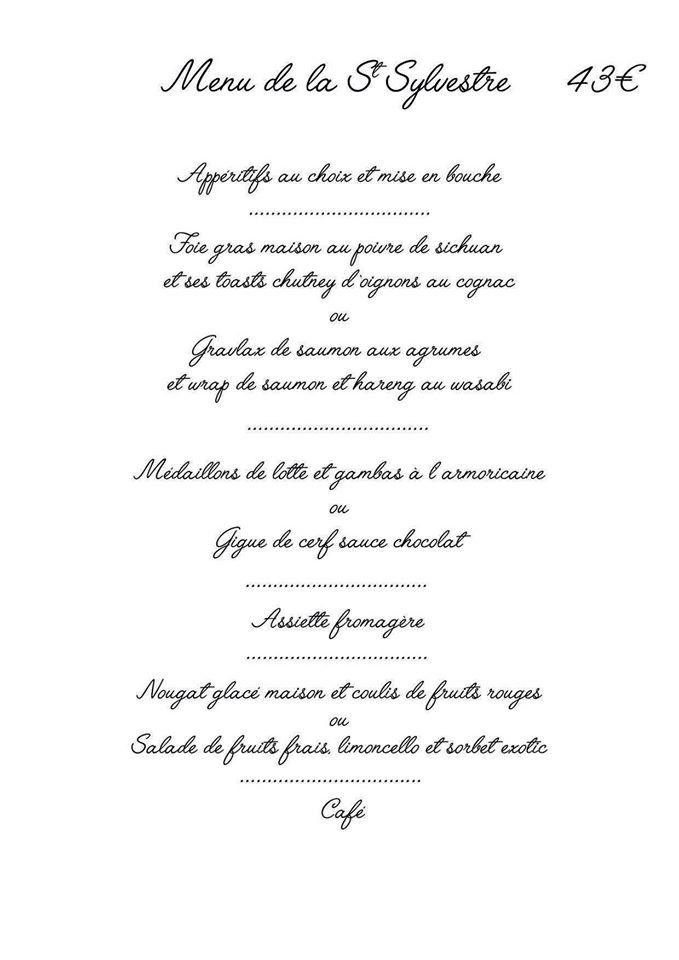 Menu de la St Sylvestre 43€
Appéritifs au choix et mise en bouche
.................................
Foie gras maison au poivre de sichuan
et ses toasts chutney d'oignons au cognac
ou
Gravlax de saumon aux agrumes
et wrap de saumon et hareng au wasabi
.................................
Médaillons de lotte et gambas à l'armoricaine
ou
Gigue de cerf sauce chocolat
.................................
Assiette fromagère
.................................
Nougat glacé maison et coulis de fruits rouges
ou
Salade de fruits frais, limoncello et sorbet exotic
.................................
Café